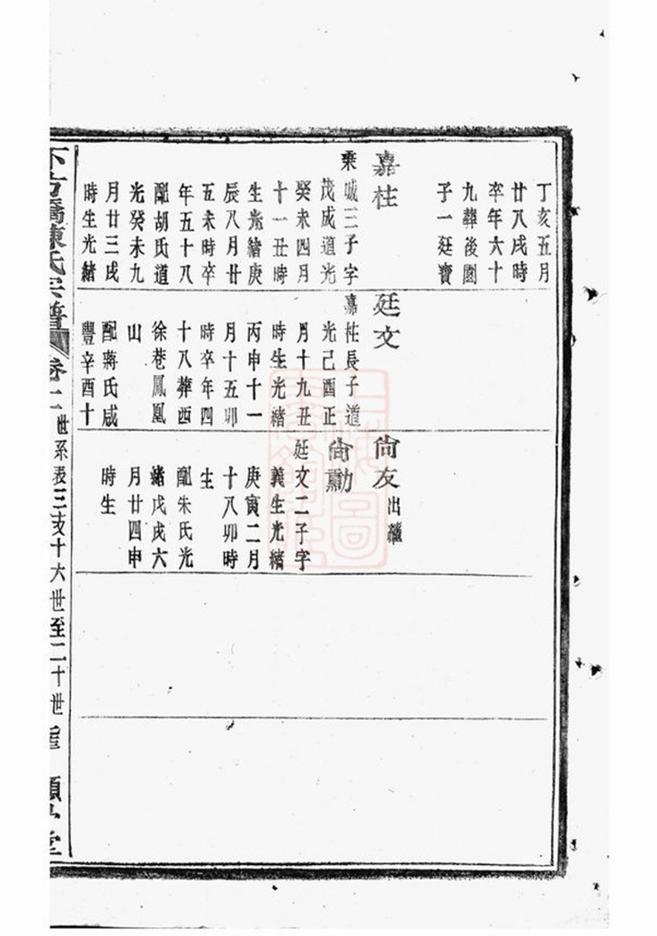 丁亥五月
廿八戌時
卒年六十
九葬後園
子一廷寶
嘉柱
秉瑊三子字
茂成道光
癸未四月
十一丑時
生光緒庚
辰八月廿
五未時卒
年五十八
配胡氏道
光癸未九
月廿三戌
時生光緒
廷文
嘉柱長子道
光己酉正
月十九丑
時生光緒
丙申十一
月十五卯
時卒年四
十八葬西
徐巷鳳凰
山
配蔣氏咸
豐辛酉十
尙友 出繼
尙勳
廷文二子字
義生光緒
庚寅二月
十八卯時
生
配朱氏光
緒戊戌六
月廿四申
時生
下方橋陳氏宗譜 卷二 世系表三支十六世至二十世